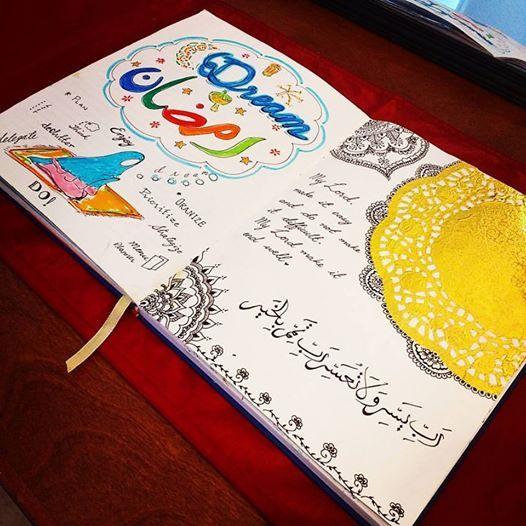 Dream
رمضان
PLAN
Fast
Enjoy
delegate
declutter
DO!
dream
ORANIZE
Prioritize
Menu
Planner
My Lord
make it easy
and do not make
it difficult.
My Lord make it
end well.
رَبِّ يَسِّرْ وَلَا تُعَسِّرْ رَبِّ تَمِّمْ بِالْخَيْرِ